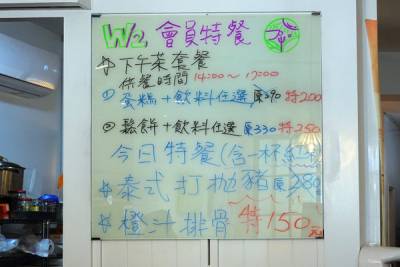 W2 會員特餐
☆下午茶套餐
供餐時間 14:00~17:00
① 蛋糕+飲料任選 原390 特200
② 鬆餅+飲料任選 原330 特250
今日特餐(含一杯紅
☆泰式打拋豬 原280
☆橙汁排骨 特150元